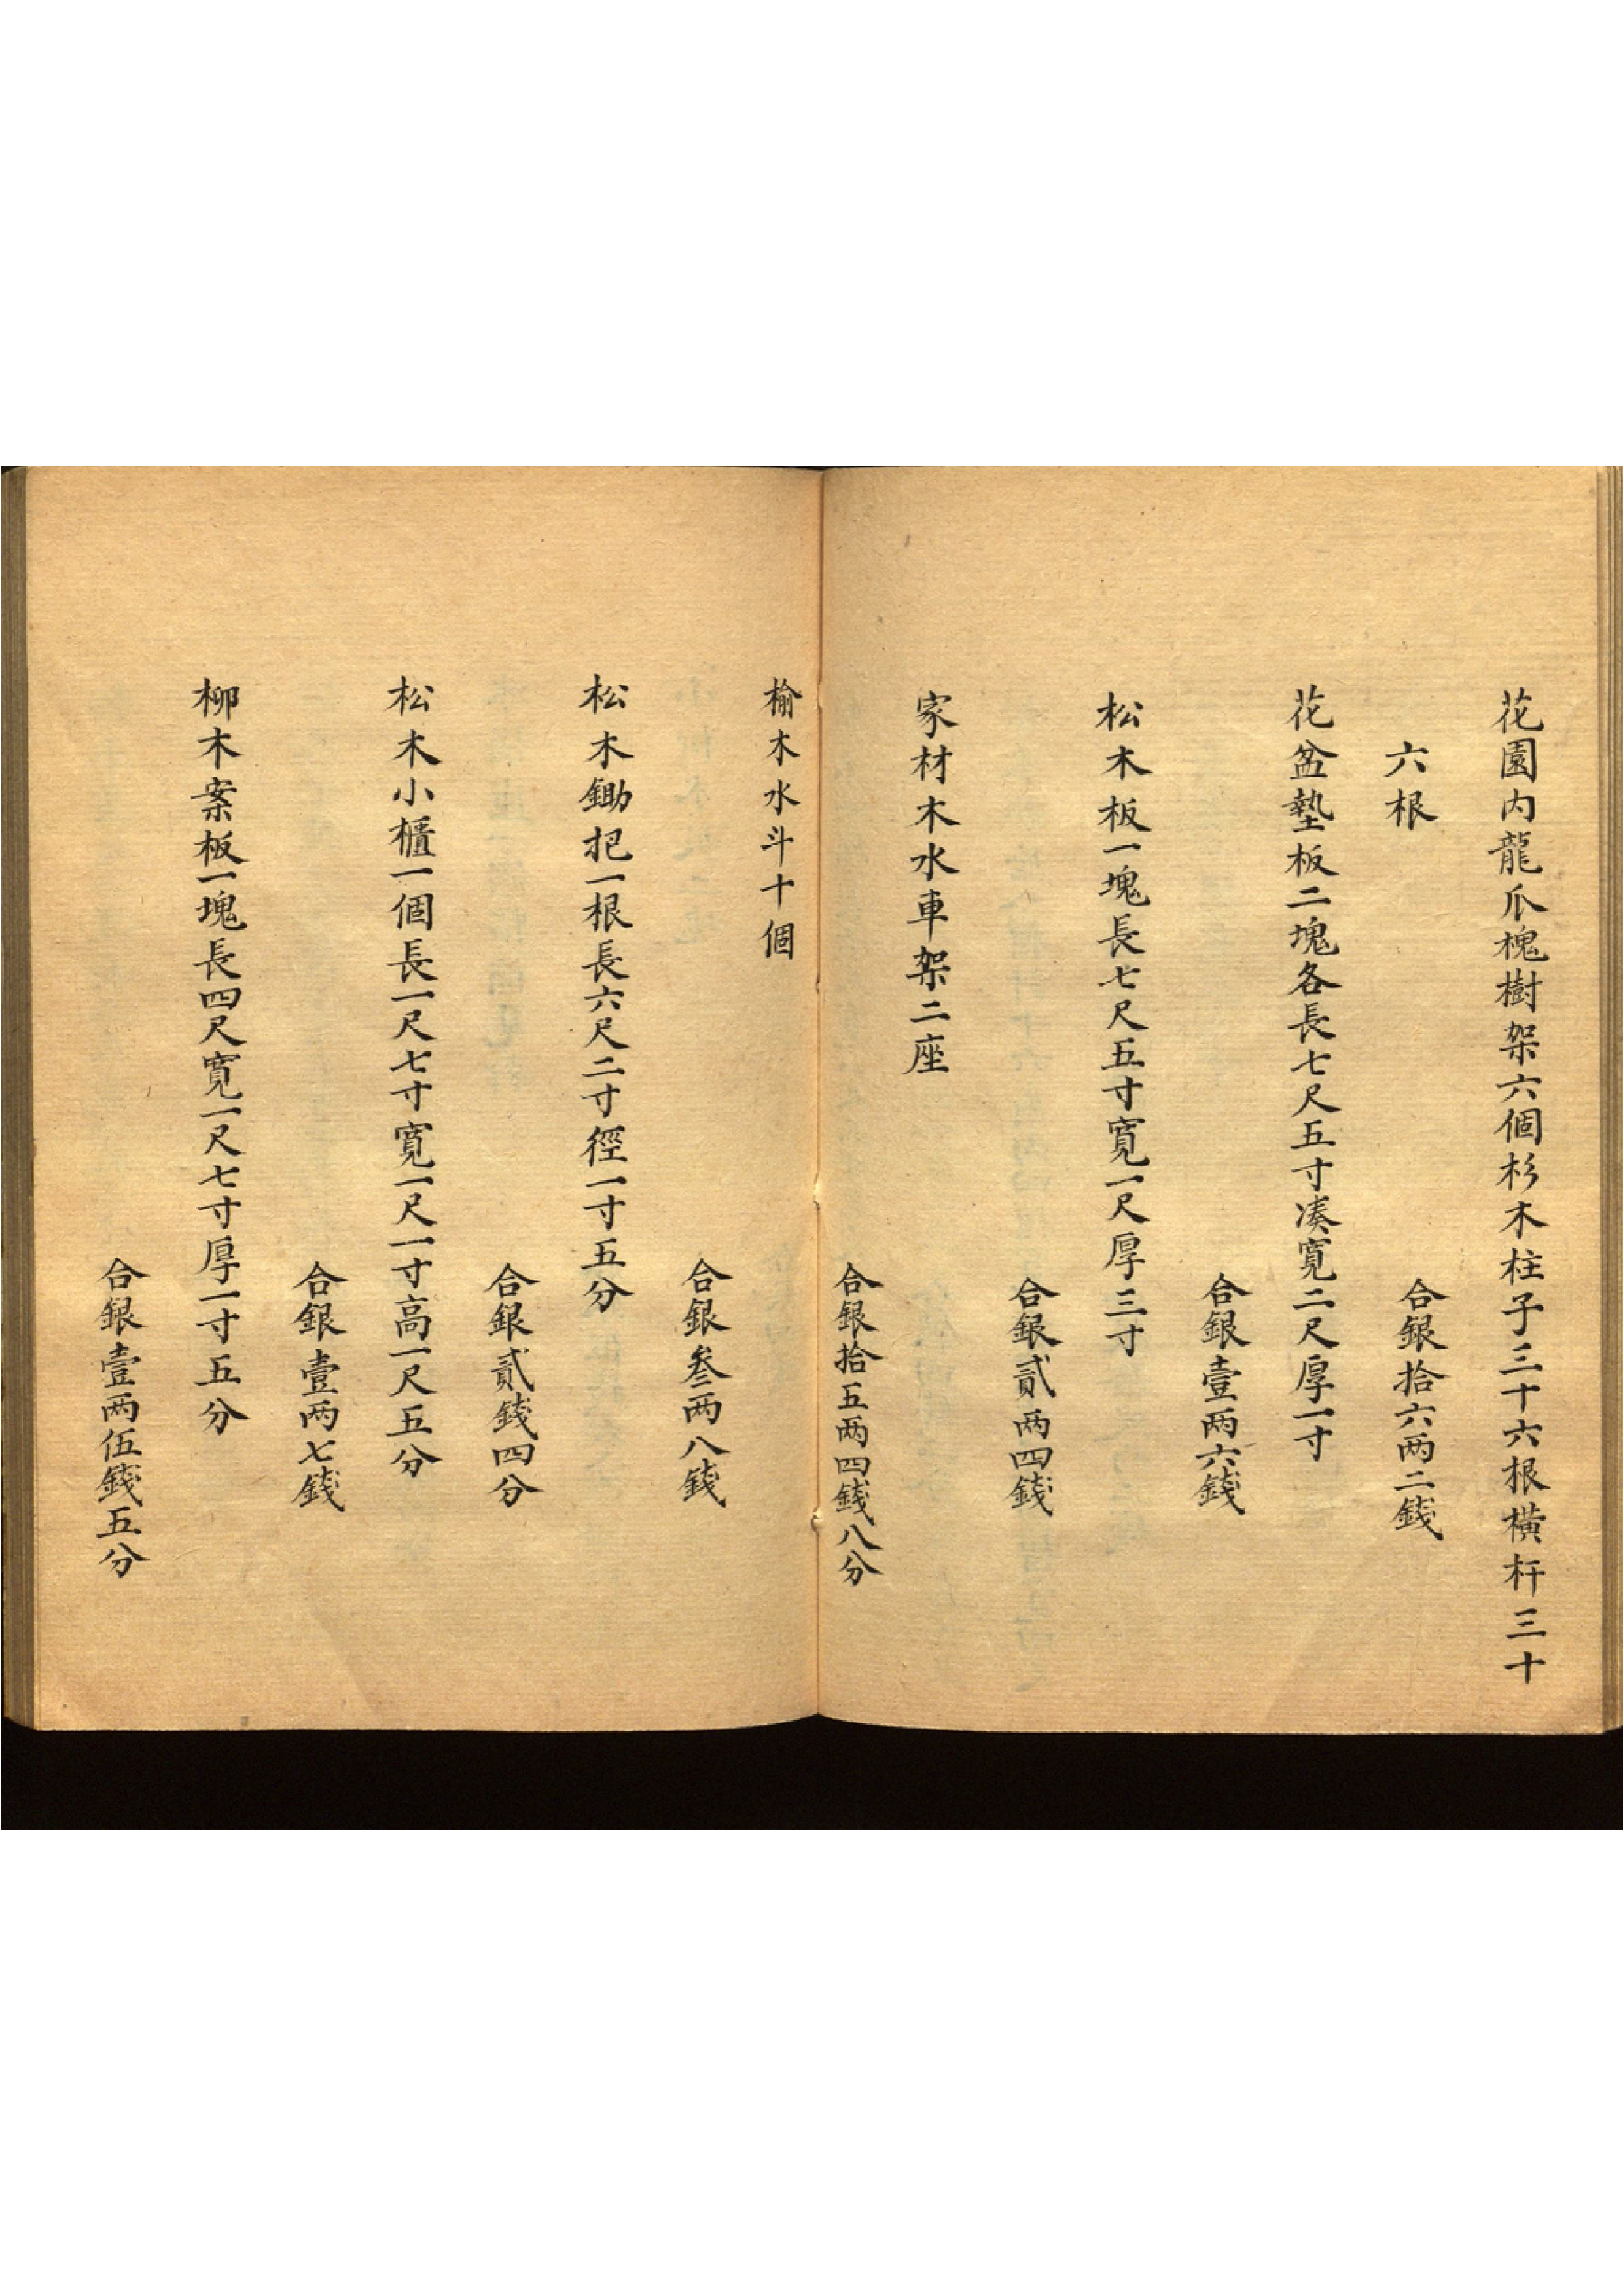 花園内龍爪槐樹架六個杉木柱子三十六根橫杆三十
六根
合銀拾六两二錢
花盆墊板二塊各長七尺五寸湊寬二尺厚一寸
合銀壹两六錢
松木板一塊長七尺五寸寬一尺厚三寸
合銀貳两四錢
家材木水車架二座
合銀拾五两四錢八分
榆木水斗十個
合銀叁两八錢
松木鋤把一根長六尺二寸徑一寸五分
合銀貳錢四分
松木小櫃一個長一尺七寸寬一尺一寸高一尺五分
合銀壹两七錢
柳木案板一塊長四尺寬一尺七寸厚一寸五分
合銀壹两伍錢五分